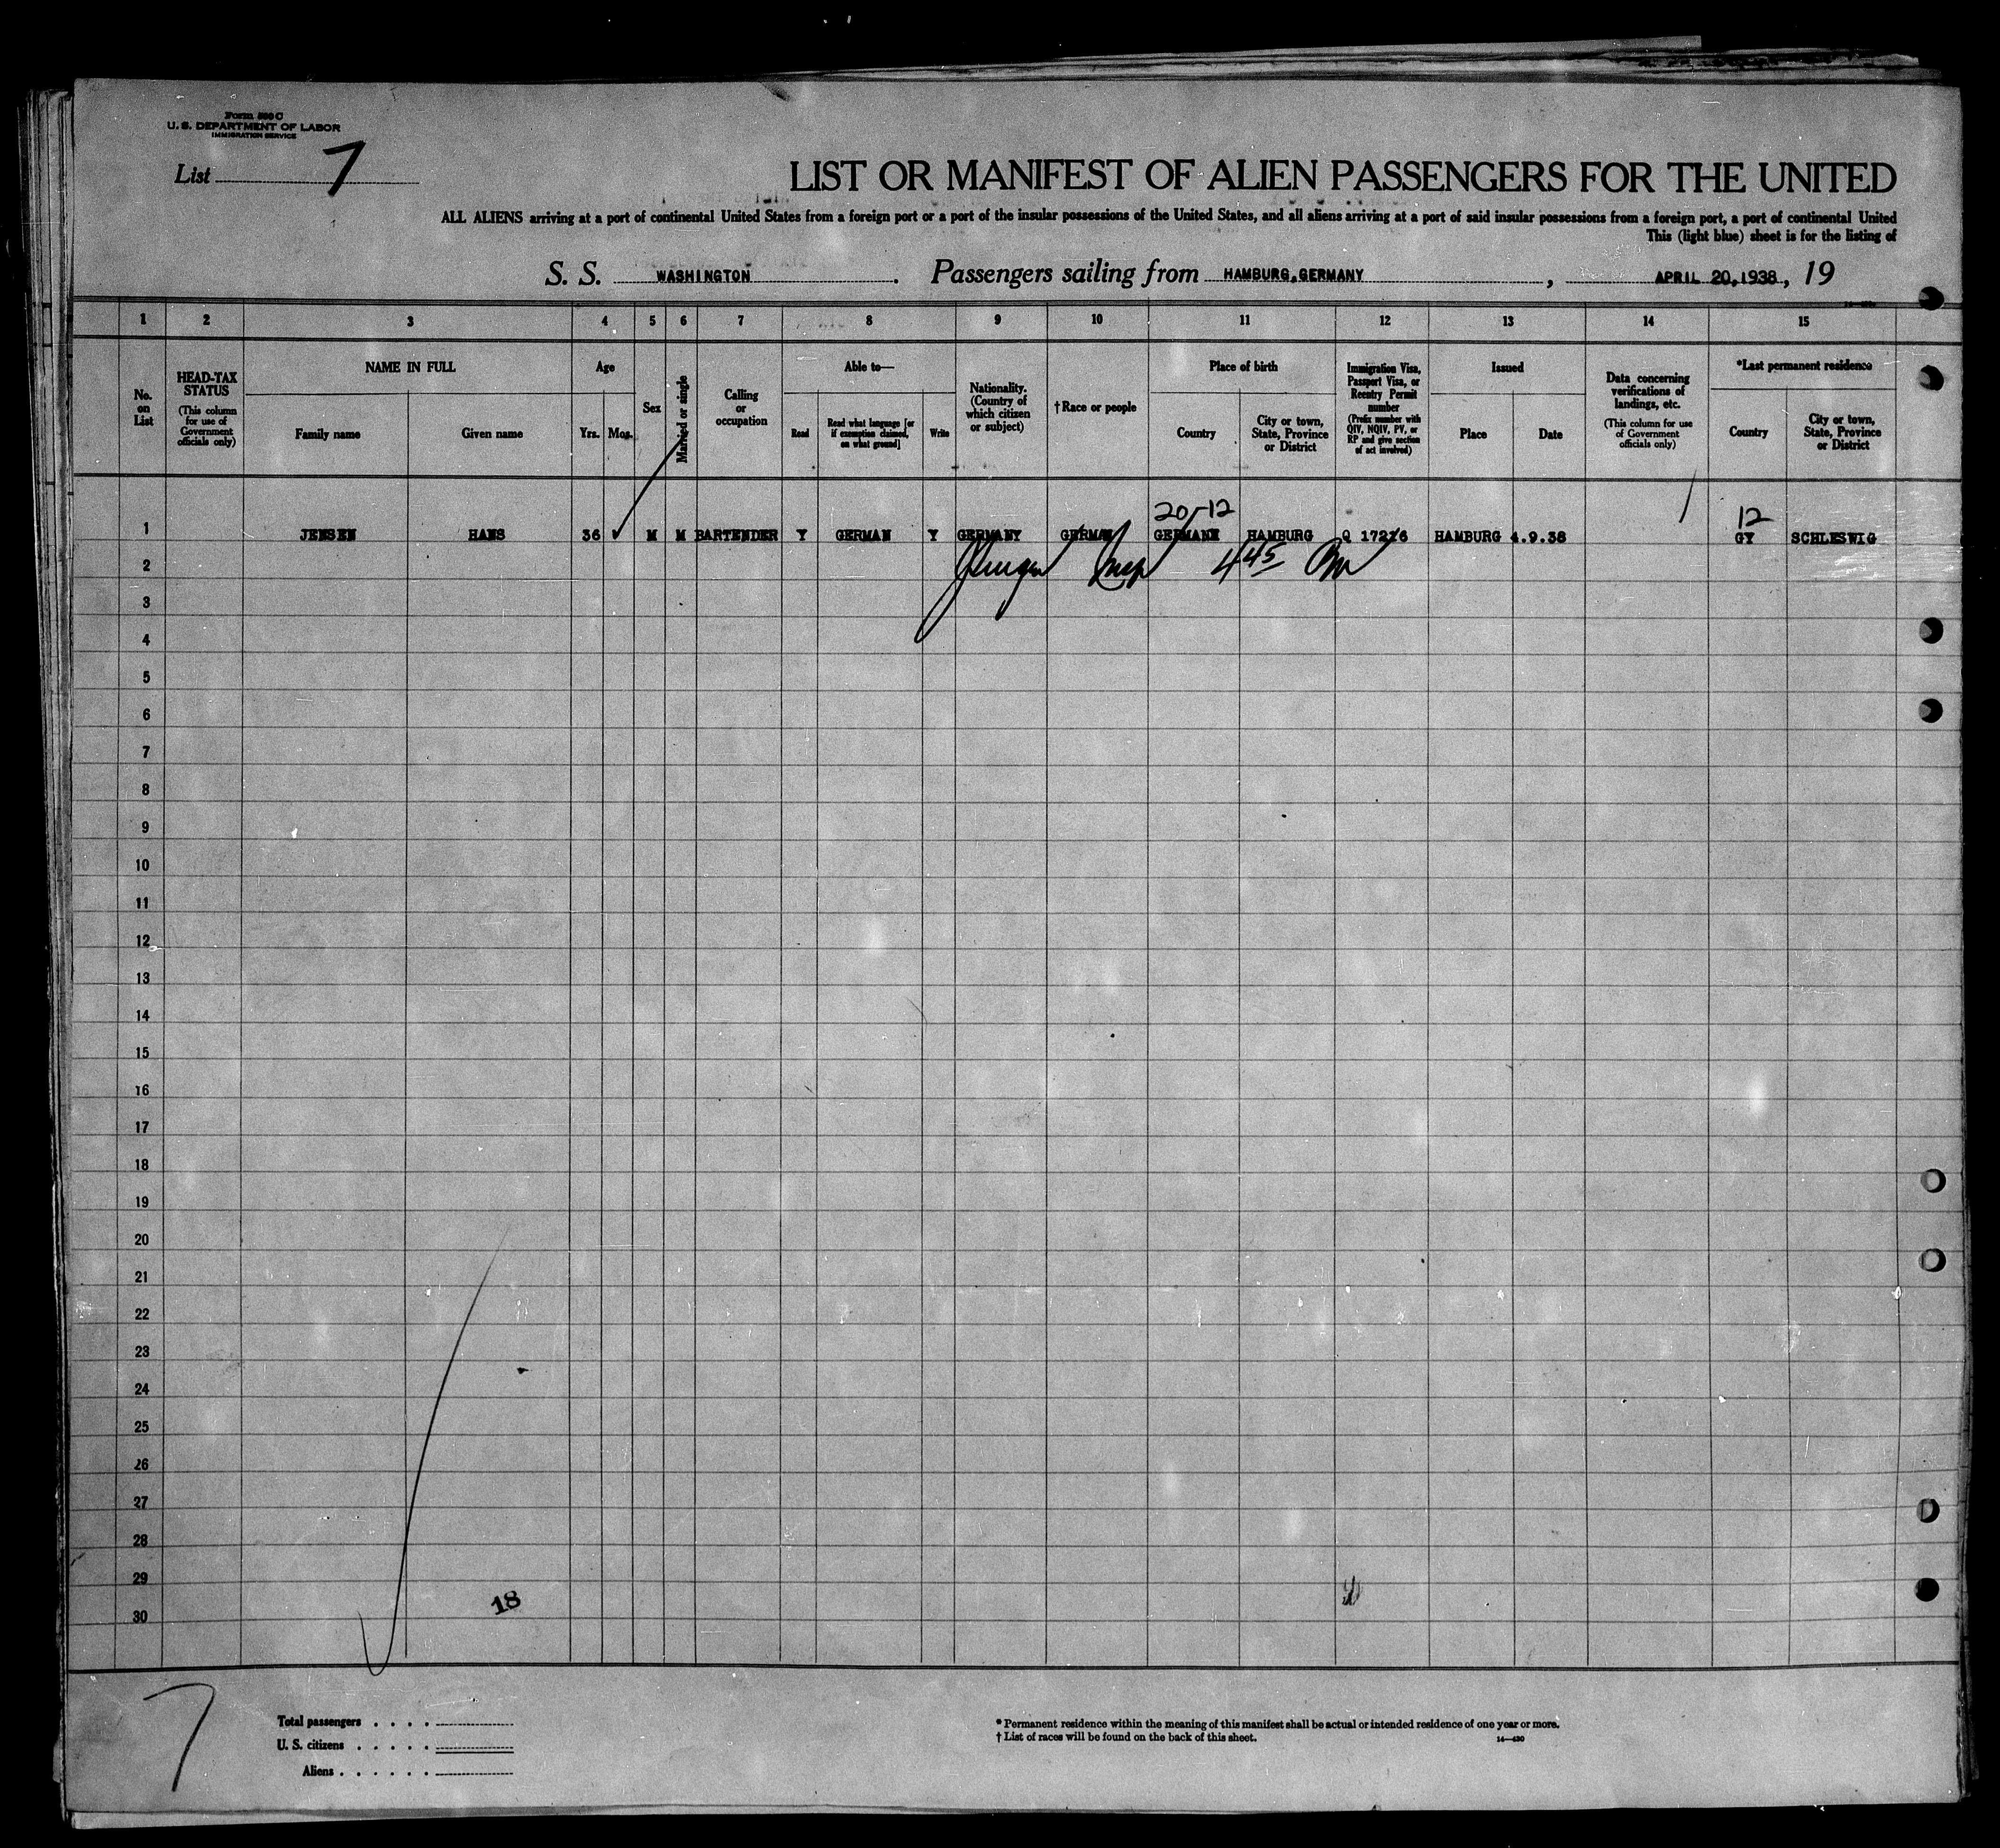 Form 500 C
U. S. DEPARTMENT OF LABOR
IMMIGRATION SERVICE
List 7
LIST OR MANIFEST OF ALIEN PASSENGERS FOR THE UNITED
ALL ALIENS arriving at a port of continental United States from a foreign port or a port of the insular possessions of the United States, and all aliens arriving at a port of said insular possessions from a foreign port, a port of continental United
This (light blue) sheet is for the listing of
S. S. WASHINGTON . Passengers sailing from HAMBURG,GERMANY , APRIL 20,1938, 19
1 2 3 4 5 6 7 8 9 10 11 12 13 14 15
No. on List
HEAD-TAX STATUS
(This column for use of Government officials only)
NAME IN FULL
Family name
Given name
Age
Yrs.
Mos.
Sex
Married or single
Calling or occupation
Able to—
Read
Read what language [or if exemption claimed, on what ground]
Write
Nationality. (Country of which citizen or subject)
†Race or people
Place of birth
Country
City or town, State, Province or District
Immigration Visa, Passport Visa, or Reentry Permit number
(Prefix number with QIV, NQIV, PV, or RP and give section of act involved)
Issued
Place
Date
Data concerning verifications of landings, etc.
(This column for use of Government officials only)
*Last permanent residence
Country
City or town, State, Province or District
20-12
12
1 JENSEN HANS 36 M M BARTENDER Y GERMAN Y GERMANY GERMAN HAMBURG Q HAMBURG 4.9.38 GY SCHLESWIG
2 Insp 4 45 Pm
3
4
5
6
7
8
9
10
11
12
13
14
15
16
17
18
19
20
21
22
23
24
25
26
27
28
29
30
18
7
Total passengers . . . .
U. S. citizens . . . . .
Aliens . . . . . .
* Permanent residence within the meaning of this manifest shall be actual or intended residence of one year or more.
† List of races will be found on the back of this sheet.
14—430